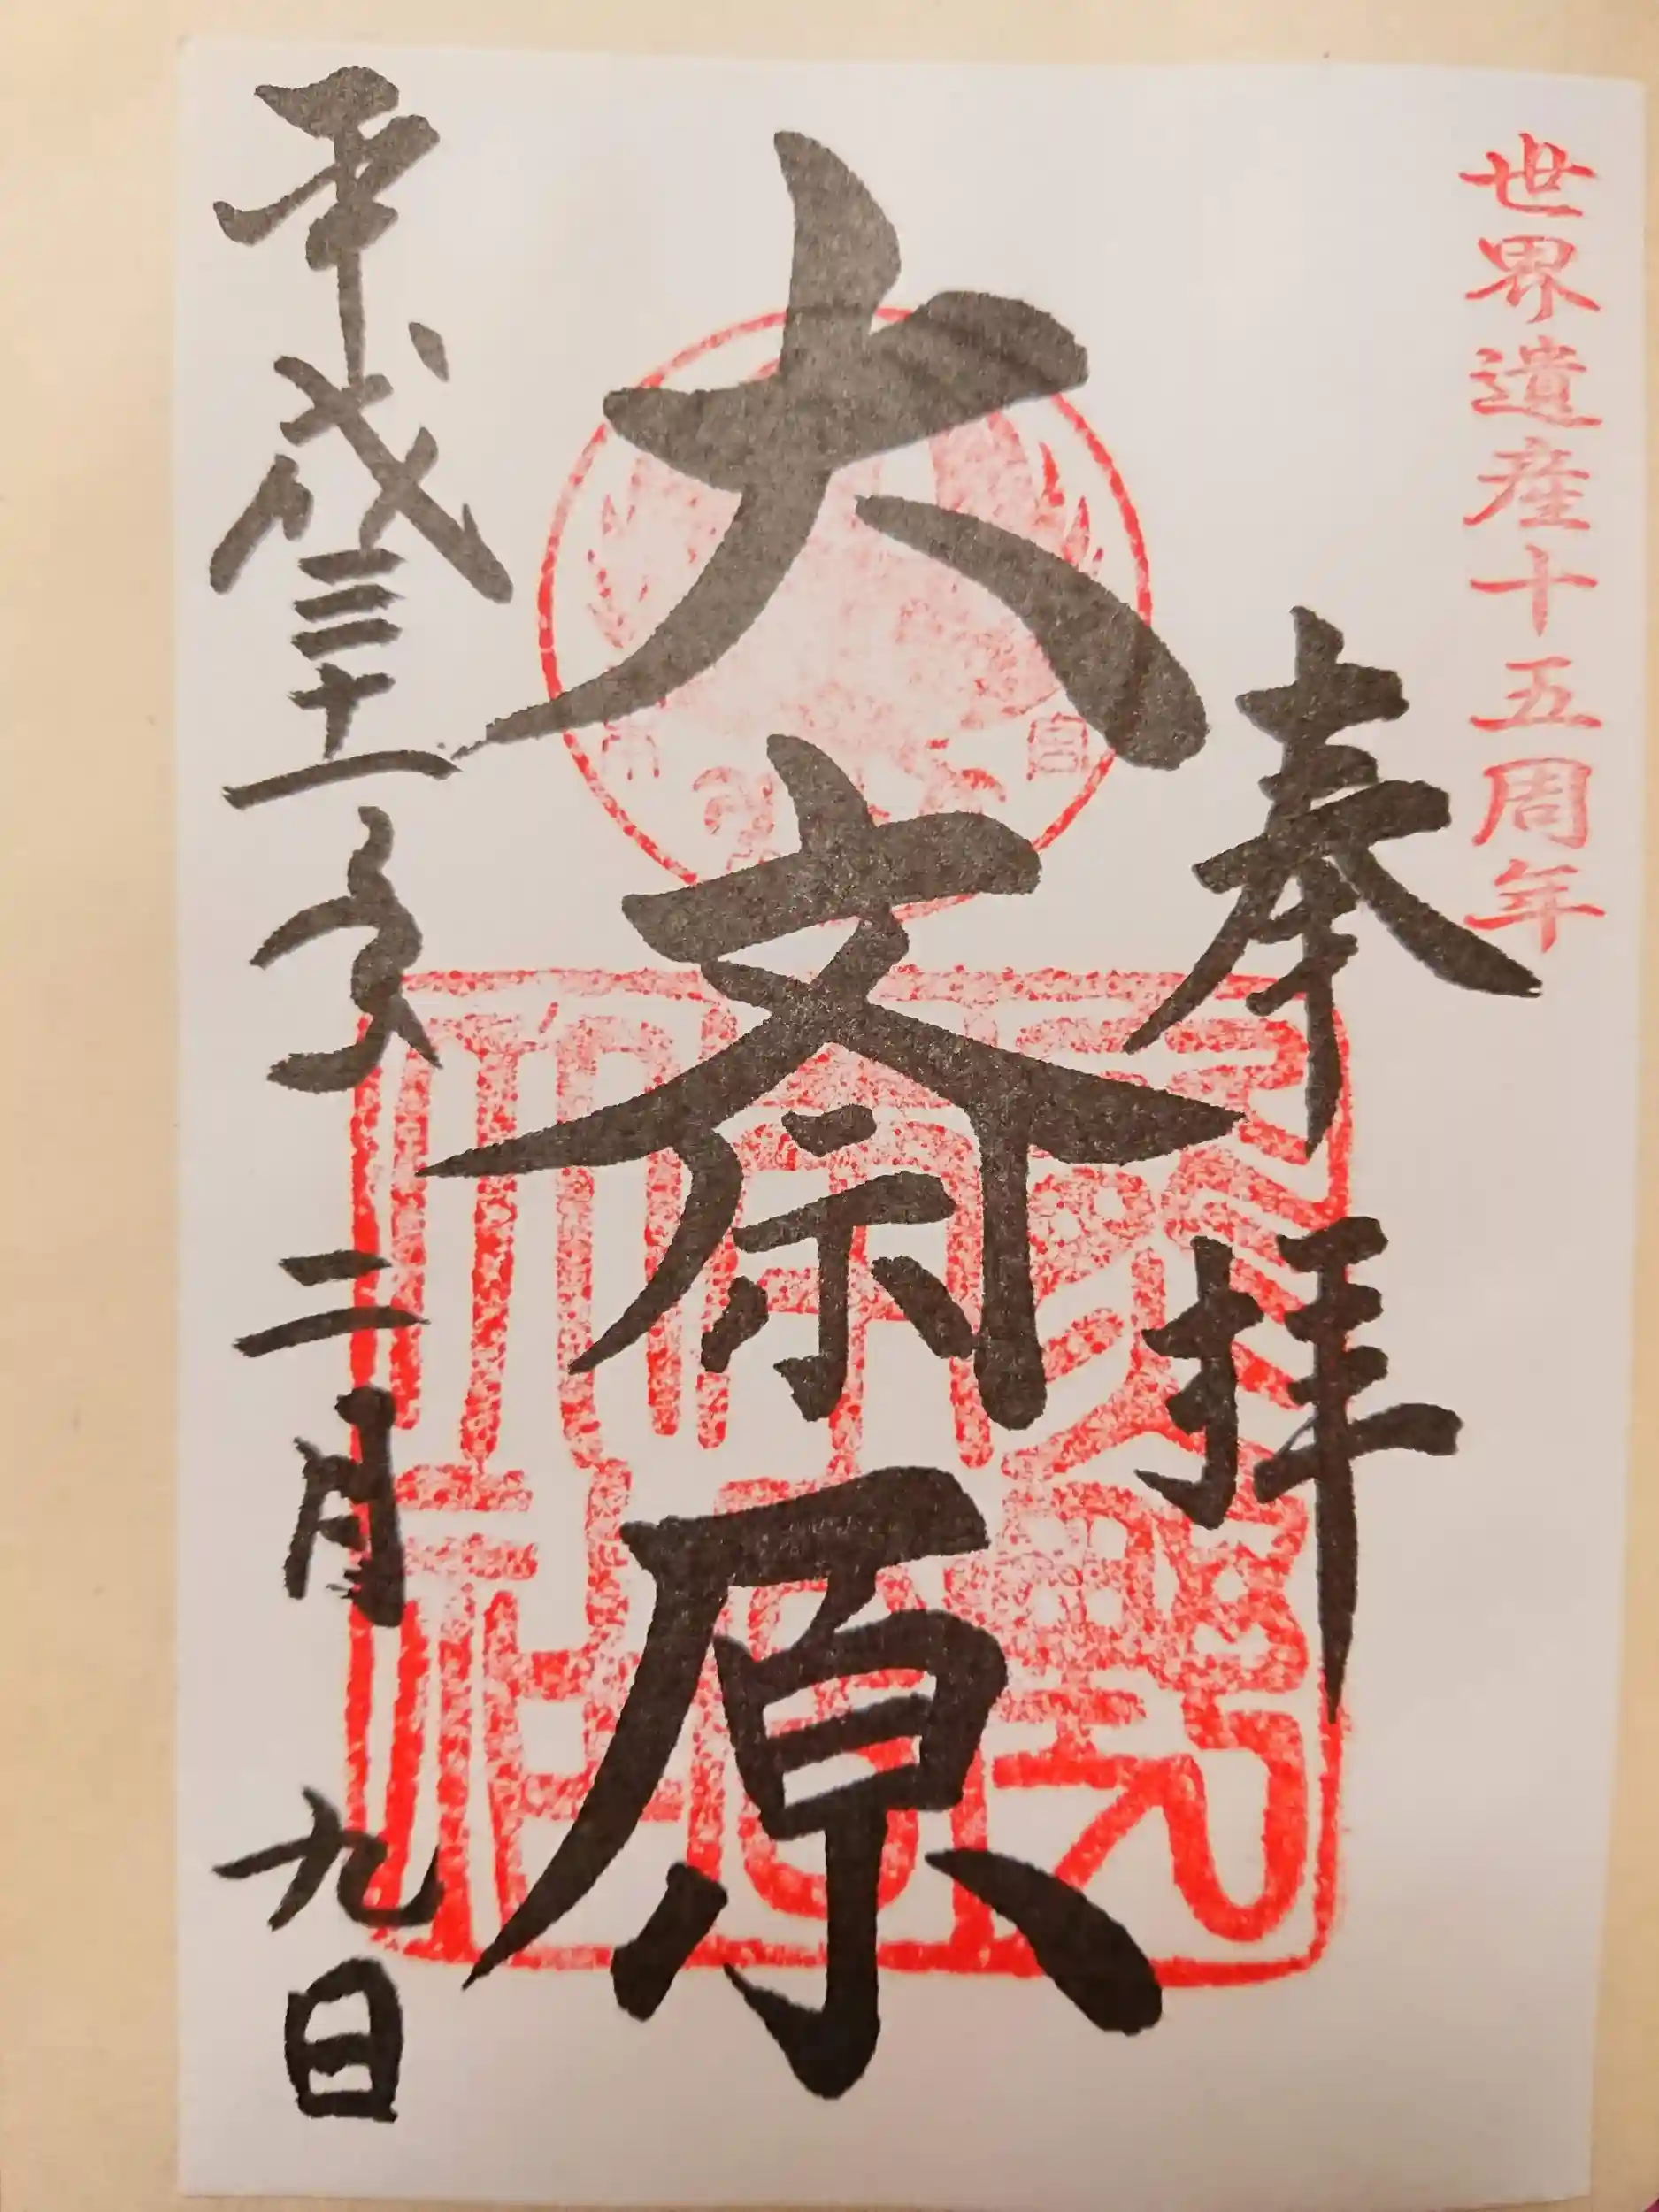 世界遺産十五周年
奉拝
大斎原
平成三十一年二月九日